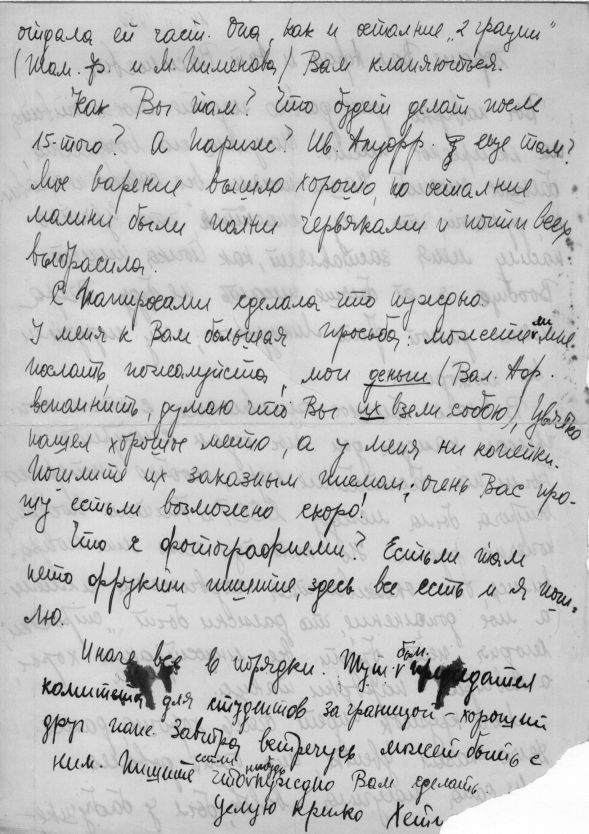 отдала ей част. Она, как и осталние „2 грации"
(Там. Ф. и М. Пименова) Вам кланяються.
Как Вы там? Что будет делат после
15-того? А Париж? Ив. Андр. еще там?
Мое варение вышло хорошо, но осталние
малини были полни червяками и почти всех
выбрасила.
С Папиросами сделала что нужьно.
У меня к Вам большая просьба: можете ли мне
послать, пожалуйста, мои деньги (Вал. Андр.
вспомнить, думаю что Вы их взели собою),
нашел хорошое место, а у меня ни копейки.
Пошлите их заказным писмом; очень Вас про-
шу естьли возможено скоро!
Что с фотографиеми? Естьли там
нето фруктии пишите, здесь все есть и я пош-
лю.
Иначе все в порядки. Тут был председател
комитета для студентов за границой – хороший
друг папе. Завтра встречусь может быть с
ним. Пишите если что нибудь нужедно Вам сделать.
Целую крепко Хети